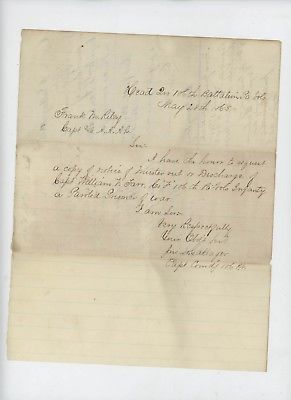 Head Qrs 106th Battalion Pa Vols
May 28th 1865
Frank
Capt & A.A.A.G.
Sir
I have the honor to request
a copy of notice of muster out or Discharge of
Capt William N. Co 106th Pa Vols Infantry
a Paroled Prisoner of War
I am Sir
Very Respectfully
Your Obdt Svt
Capt Comdg 106th Pa